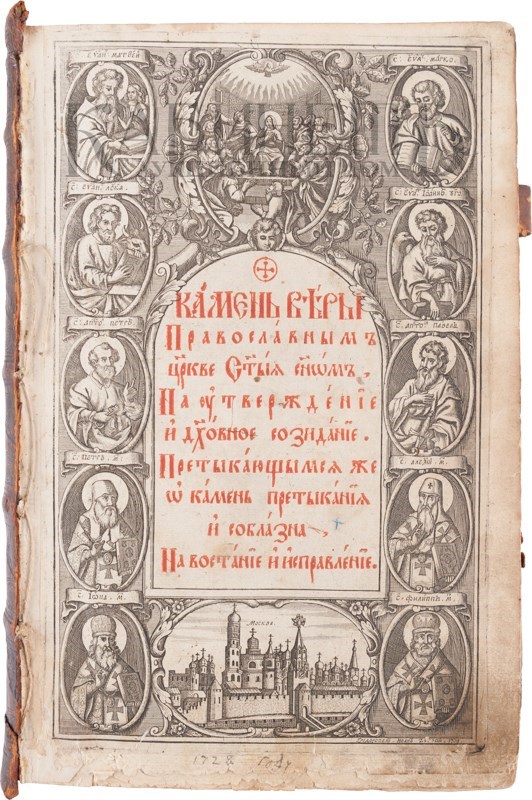 С: Еѵан: Матѳей
С: Еѵа: Марко.
С: Еѵан: Лѹка.
С: Еѵа: Іоаннъ
С: Апто: Петръ
С: Апто: Павелъ
С: Петръ. М.
С: Алеѯій М.
С: Іѡна. М.
С: Филиппъ. М.
КА́МЕНЬ ВѢ́РЫ
Правосла́внымъ
цр҃кве Ст҃ы́ѧ сн҃ѡ́мъ,
На оу҆твержде́нїе
и҆ дх҃о́вное созида́нїе.
Претыка́ющымсѧ же
ѡ҆ ка́мень претыка́нїѧ
и҆ собла́зна,
На воста́нїе и҆ и҆справле́нїе.
Москва.
1728 году